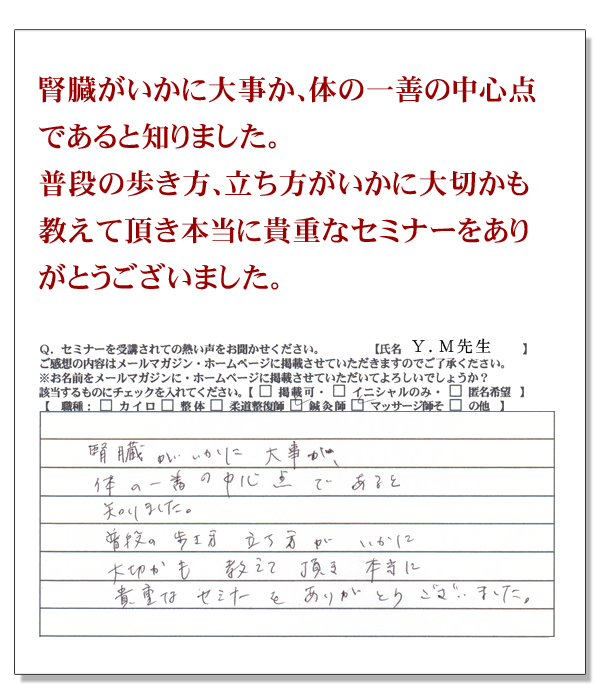 腎臓がいかに大事か、体の一善の中心点
であると知りました。
普段の歩き方、立ち方がいかに大切かも
教えて頂き本当に貴重なセミナーをあり
がとうございました。
Q．セミナーを受講されての熱い声をお聞かせください。　【氏名　Ｙ．Ｍ先生　】
ご感想の内容はメールマガジン・ホームページに掲載させていただきますのでご了承ください。
※お名前をメールマガジンに・ホームページに掲載させていただいてよろしいでしょうか？
該当するものにチェックを入れてください。【 □ 掲載可・ □ イニシャルのみ・ □ 匿名希望 】
【 職種： □ カイロ □ 整体 □ 柔道整復師 ☑ 鍼灸師 ☑ マッサージ師そ □ の他 】
腎臓がいかに大事か、
体の一番の中心点であると
知りました。
普段の歩き方 立ち方が いかに
大切かも 教えて 頂き 本当に
貴重な セミナーを ありがとうございました。